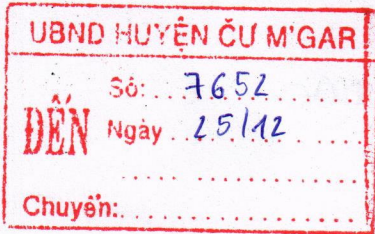 UBND HUYỆN ČƯ M'GAR
ĐẾN
Số: 7652
Ngày 25/12
Chuyển: